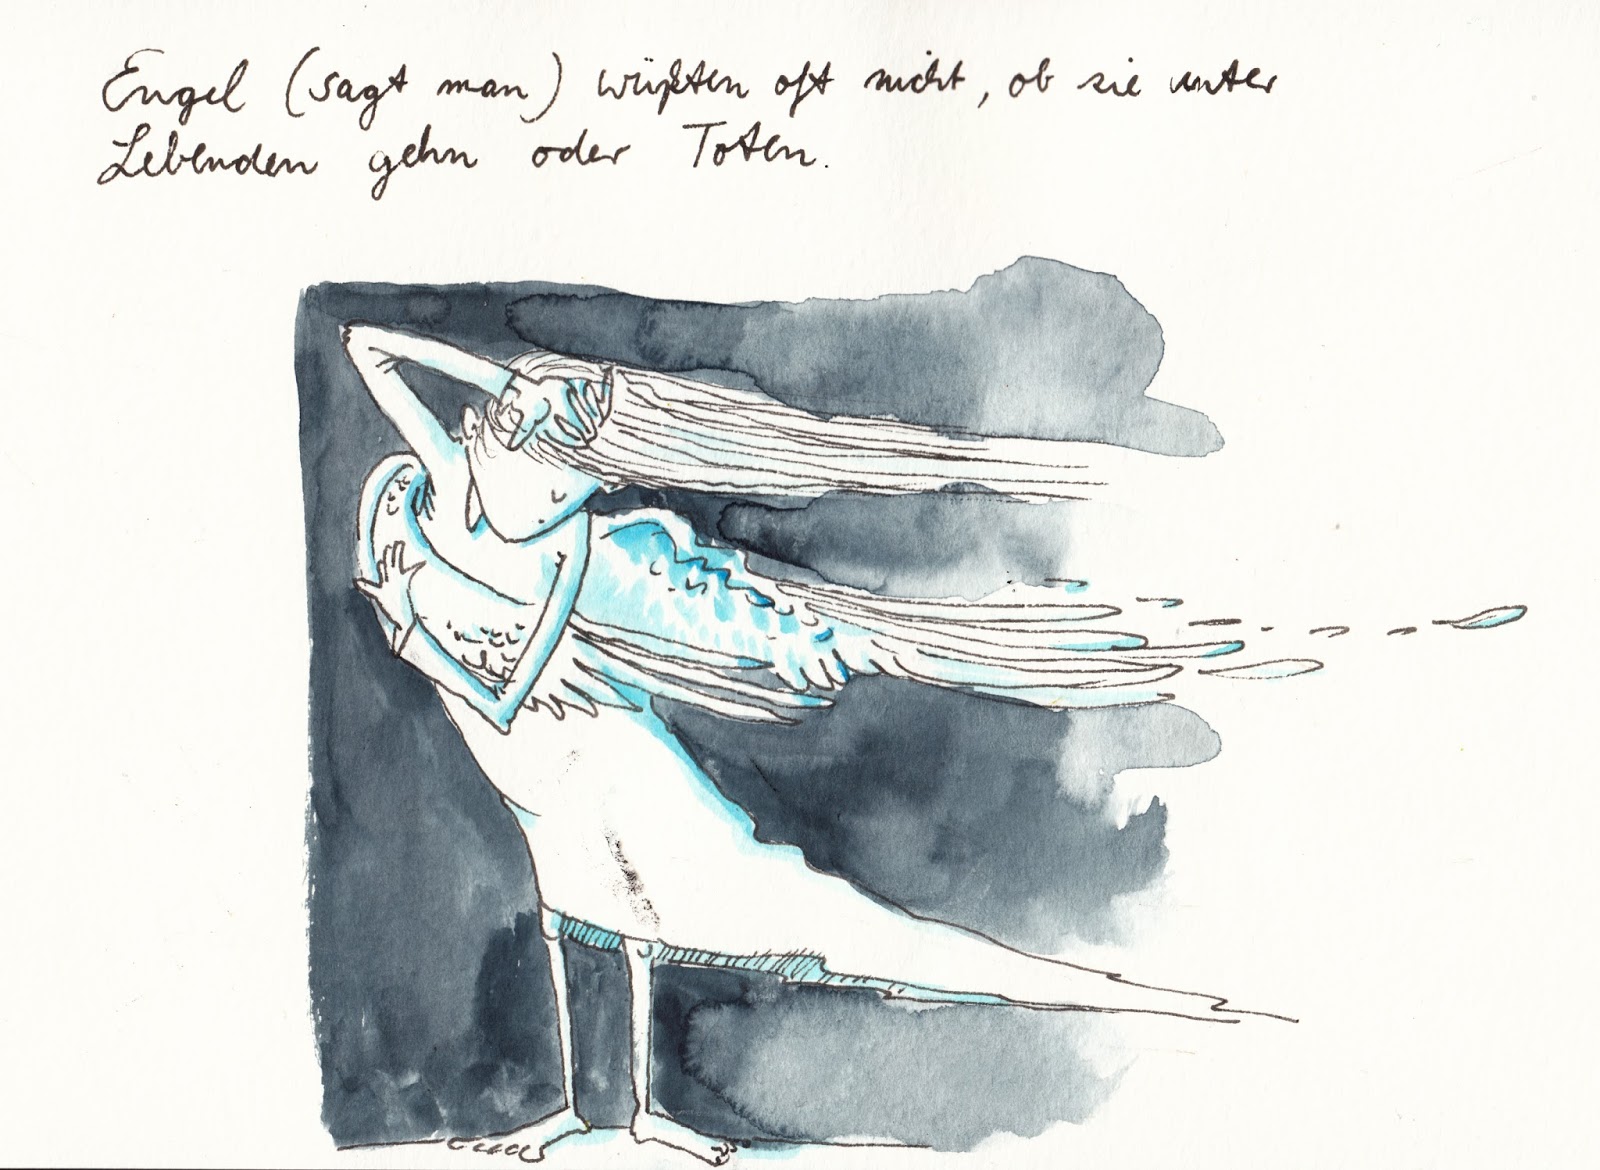 Engel (sagt man) wüßten oft nicht, ob sie unter
Lebenden gehn oder Toten.